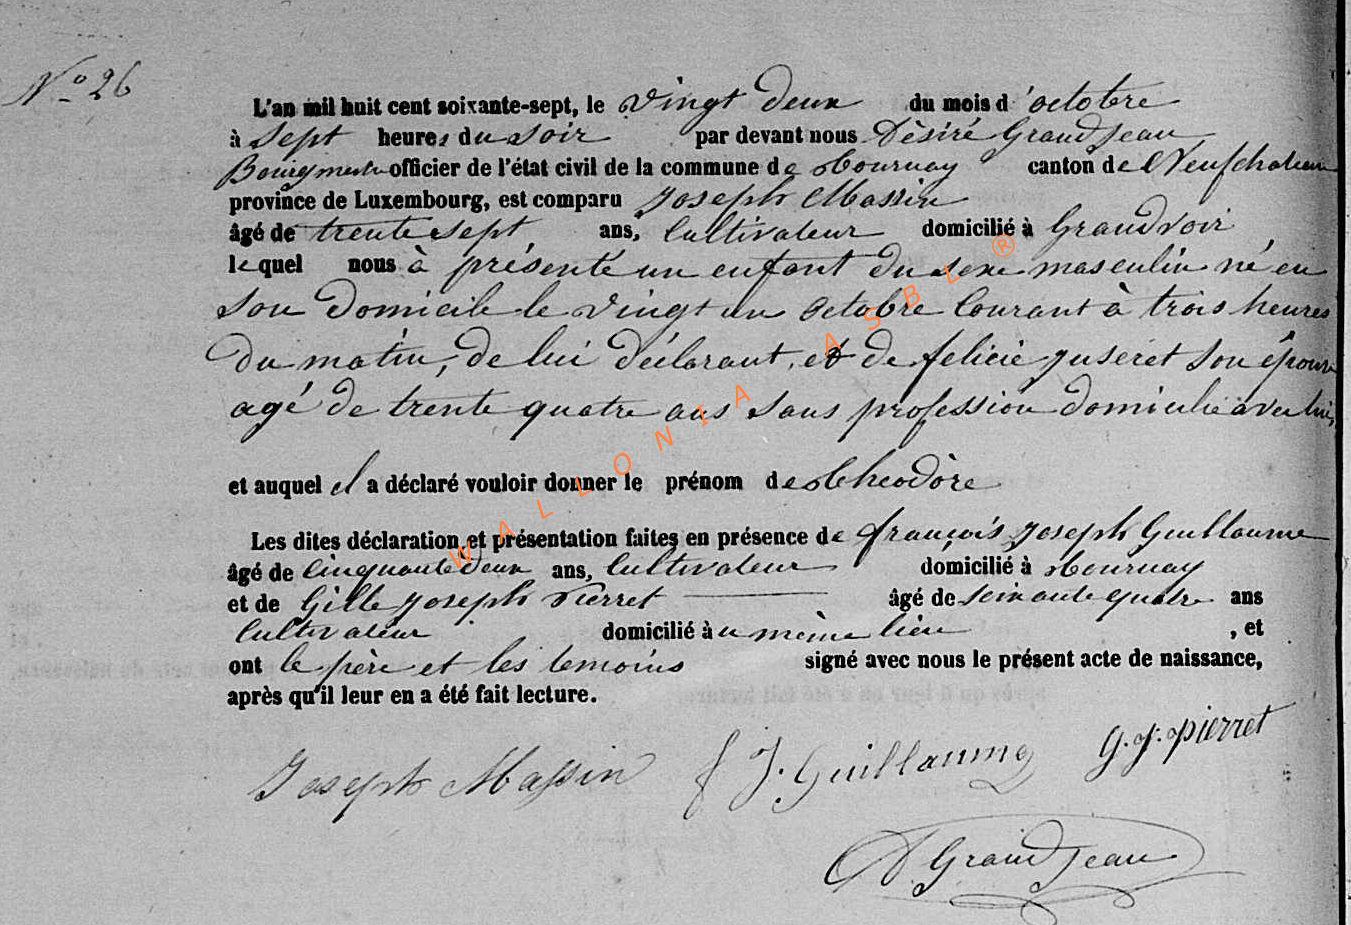 N° 26
L'an mil huit cent soixante-sept, le vingt deux du mois d'octobre
à sept heures du soir par devant nous Dèsiré Grandjean
Bourgmestre officier de l'état civil de la commune de Tournay canton de Neufchateau
province de Luxembourg, est comparu Joseph Massin
âgé de trente sept ans, Cultivateur domicilié à Grandvoir
lequel nous à présenté un enfant du sexe masculin né en
son domicile le vingt un octobre Courant à trois heures
du matin, de lui déclarant, et de felicie juseret son épouse
agé de trente quatre ans sans profession domicilié avec lui,
et auquel il a déclaré vouloir donner le prénom de Theodòre
Les dites déclaration et présentation faites en présence de françois Joseph Guillaume
âgé de Cinquante deux ans, Cultivateur domicilié à Tournay
et de Gille Joseph Pierret âgé de soixante quatre ans
Cultivateur domicilié au même lieu , et
ont le père et les temoins signé avec nous le présent acte de naissance,
après qu'il leur en a été fait lecture.
Joseph Massin f J. Guillaume G. J. pierret
D Grandjean
WALLONIA ASBL ®